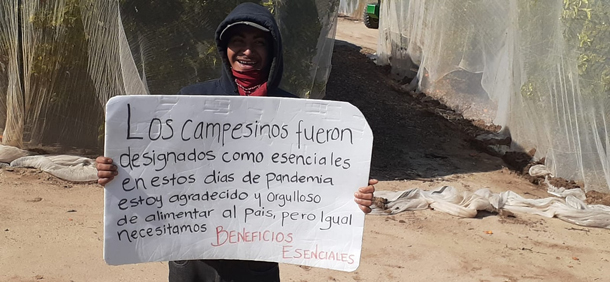 Los campesinos fueron
designados como esenciales
en estos días de pandemia
estoy agradecido y orgulloso
de alimentar al país, pero igual
necesitamos BENEFICIOS
ESENCIALES